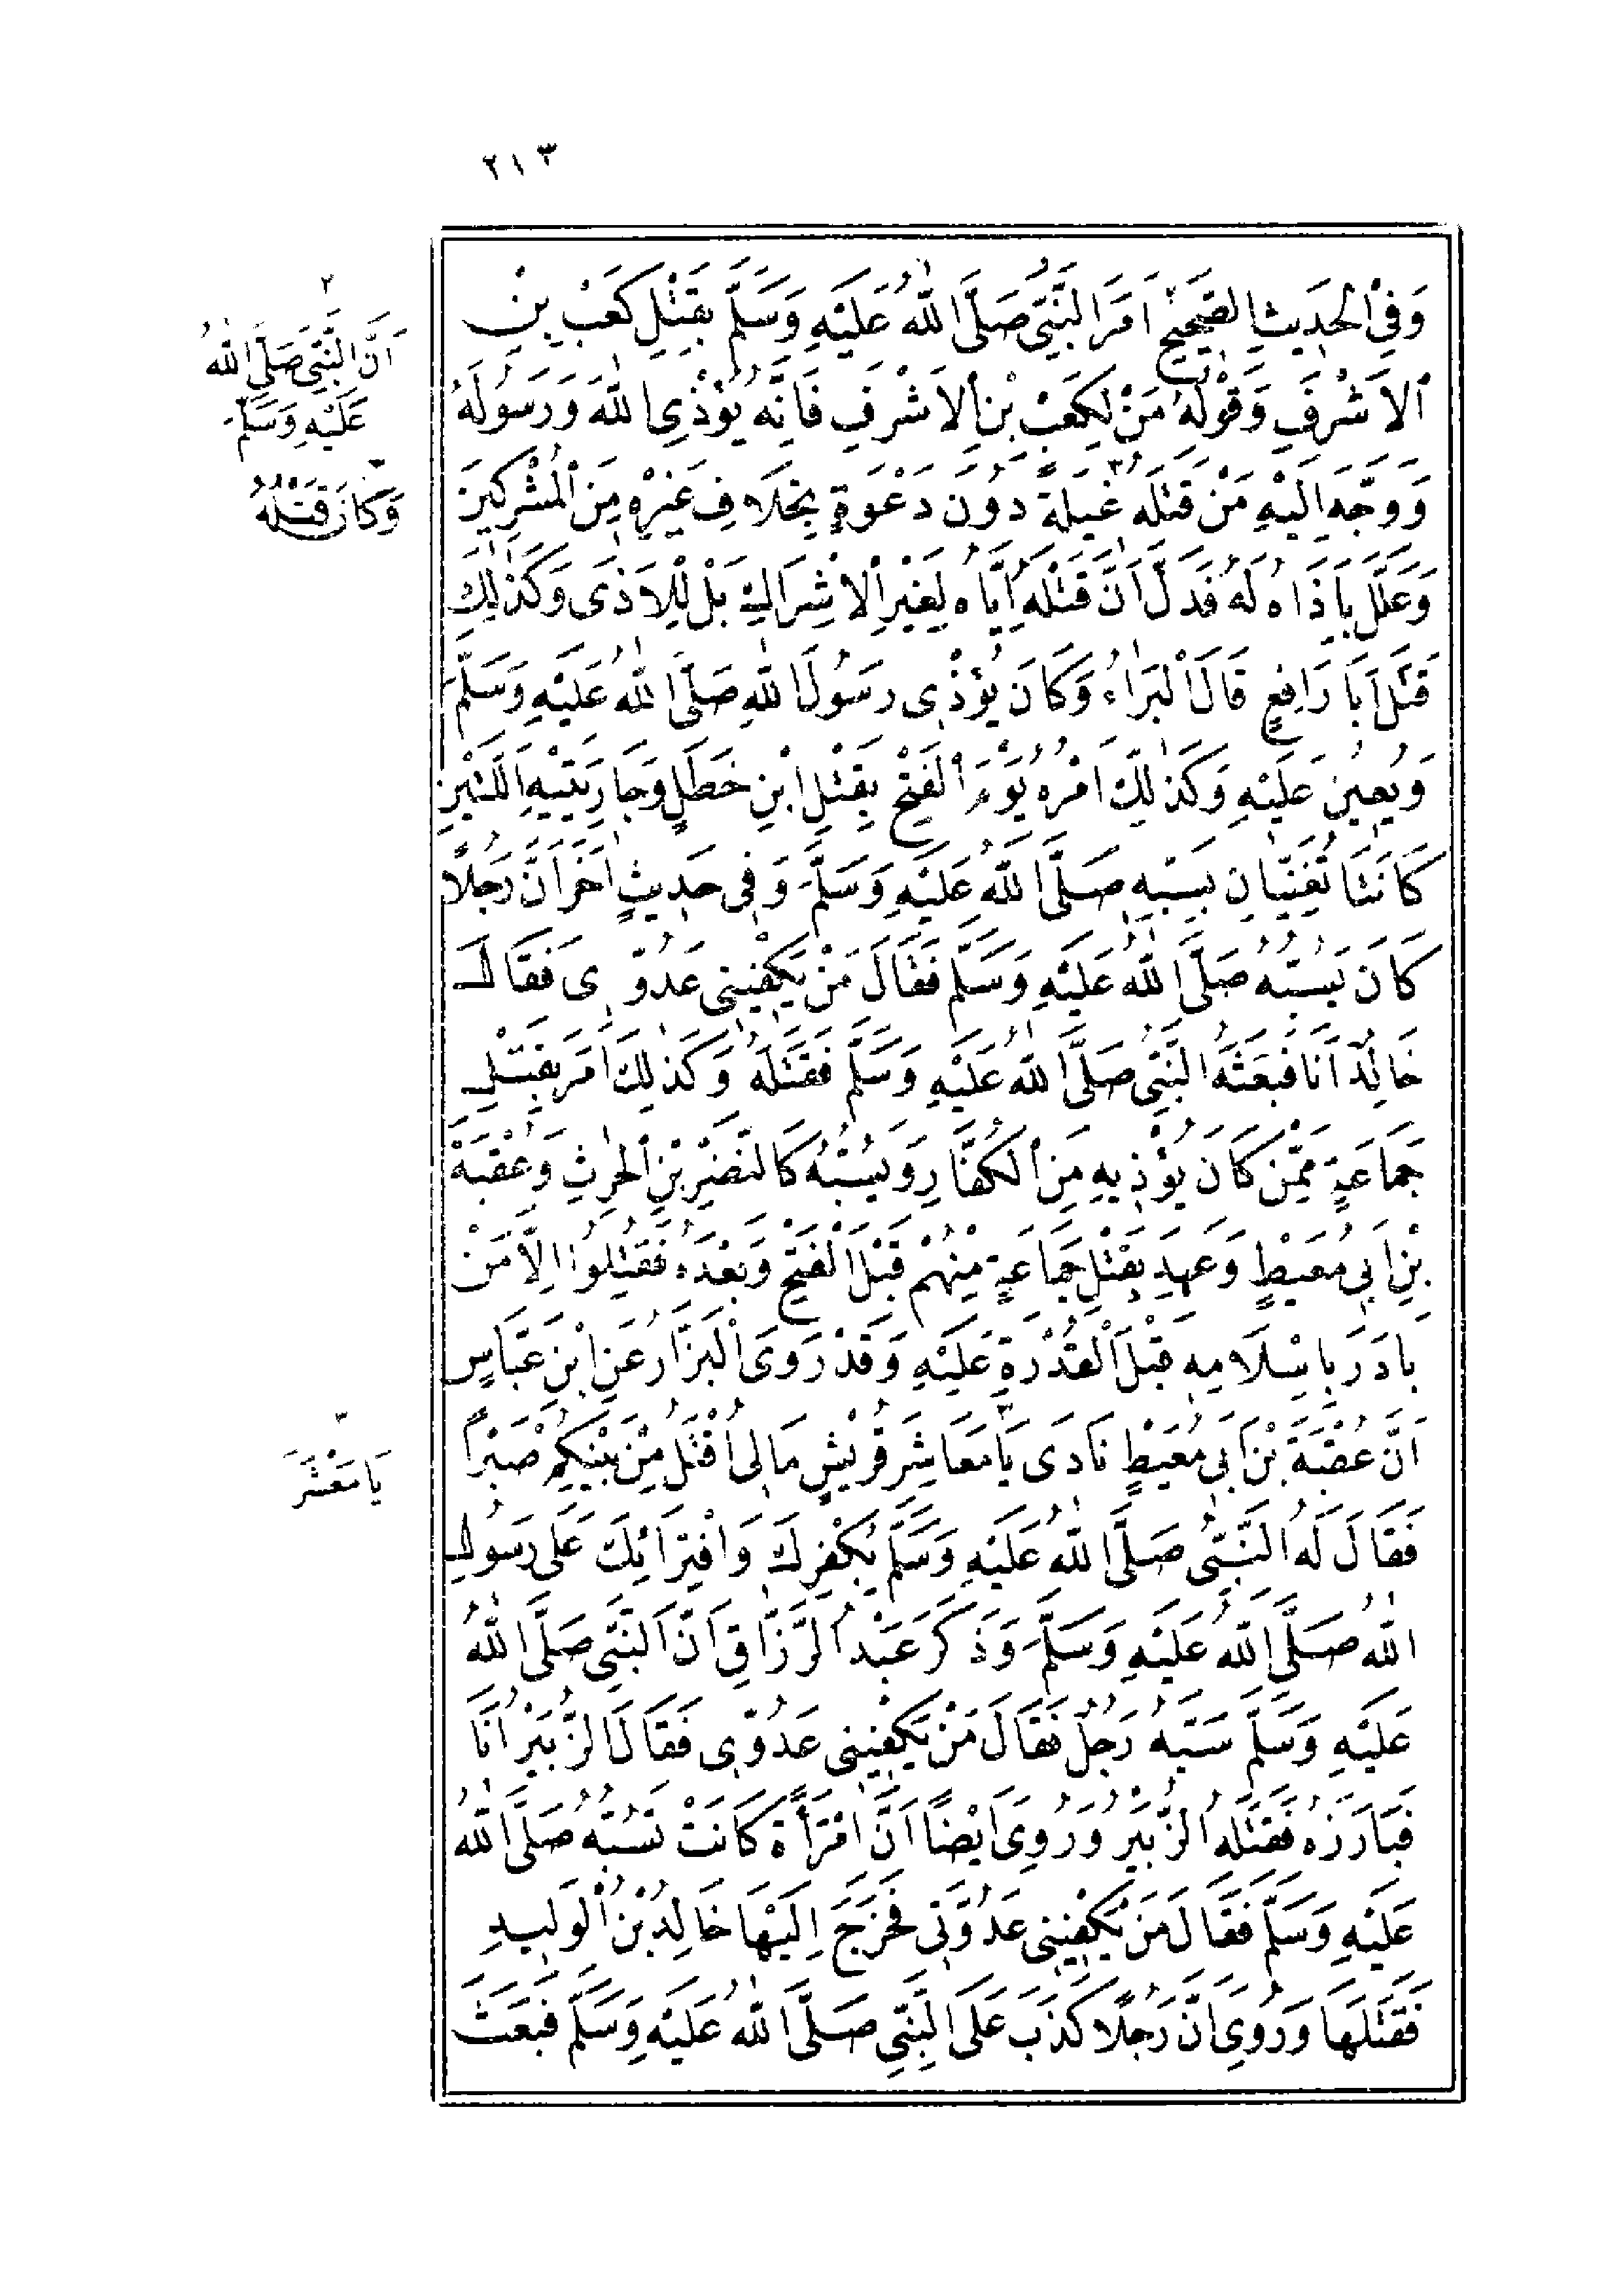 ٢١٣
وَفِي الْحَدِيثِ الصَّحِيحِ اَمَرَ النَّبِيُّ صَلَّى اللّٰهُ عَلَيْهِ وَسَلَّمَ بِقَتْلِ كَعْبِ بْنِ
الْاَشْرَفِ وَقَوْلُهُ مَنْ لِكَعْبِ بْنِ الْاَشْرَفِ فَاِنَّهُ يُؤْذِي اللّٰهَ وَرَسُولَهُ
وَوَجَّهَ اِلَيْهِ مَنْ قَتَلَهُ غِيلَةً دُونَ دَعْوَةٍ بِخِلَافِ غَيْرِهِ مِنَ الْمُشْرِكِينَ
وَعَلَّلَ بِاَذَاهُ لَهُ فَدَلَّ اَنَّ قَتْلَهُ اِيَّاهُ لِغَيْرِ الْاِشْرَاكِ بَلْ لِلْاَذَى وَكَذٰلِكَ
قَتَلَ اَبَا رَافِعٍ قَالَ الْبَرَاءُ وَكَانَ يُؤْذِى رَسُولَ اللّٰهِ صَلَّى اللّٰهُ عَلَيْهِ وَسَلَّمَ
وَيُعِينُ عَلَيْهِ وَكَذٰلِكَ اَمْرُهُ يَوْمَ الْفَتْحِ بِقَتْلِ ابْنِ خَطَلٍ وَجَارِيَتَيْهِ اللَّتَيْنِ
كَانَتَا تُغَنِّيَانِ بِسَبِّهِ صَلَّى اللّٰهُ عَلَيْهِ وَسَلَّمَ وَفِى حَدِيثٍ اٰخَرَ اَنَّ رَجُلًا
كَانَ يَسُبُّهُ صَلَّى اللّٰهُ عَلَيْهِ وَسَلَّمَ فَقَالَ مَنْ يَكْفِينِى عَدُوِّى فَقَالَ
خَالِدٌ اَنَا فَبَعَثَهُ النَّبِىُّ صَلَّى اللّٰهُ عَلَيْهِ وَسَلَّمَ فَقَتَلَهُ وَكَذٰلِكَ اَمَرَ بِقَتْلِ
جَمَاعَةٍ مِمَّنْ كَانَ يُؤْذِيهِ مِنَ الْكُفَّارِ وَيَسُبُّهُ كَالنَّضْرِ بْنِ الْحٰرِثِ وَعُقْبَةَ
بْنِ اَبِى مُعَيْطٍ وَعَهِدَ بِقَتْلِ جَمَاعَةٍ مِنْهُمْ قَبْلَ الْفَتْحِ وَبَعْدَهُ فَقُتِلُوا اِلَّا مَنْ
بَادَرَ بِاِسْلَامِهِ قَبْلَ الْقُدْرَةِ عَلَيْهِ وَقَدْ رَوَى الْبَزَّارُ عَنِ ابْنِ عَبَّاسٍ
اَنَّ عُقْبَةَ بْنَ اَبِى مُعَيْطٍ نَادَى يَا مَعَاشِرَ قُرَيْشٍ مَالِى اُقْتَلُ مِنْ بَيْنِكُمْ صَبْرًا
فَقَالَ لَهُ النَّبِىُّ صَلَّى اللّٰهُ عَلَيْهِ وَسَلَّمَ بِكُفْرِكَ وَافْتِرَائِكَ عَلَى رَسُولِ
اللّٰهِ صَلَّى اللّٰهُ عَلَيْهِ وَسَلَّمَ وَذَكَرَ عَبْدُ الرَّزَّاقِ اَنَّ النَّبِىَّ صَلَّى اللّٰهُ
عَلَيْهِ وَسَلَّمَ سَبَّهُ رَجُلٌ فَقَالَ مَنْ يَكْفِينِى عَدُوِّى فَقَالَ الزُّبَيْرُ اَنَا
فَبَارَزَهُ فَقَتَلَهُ الزُّبَيْرُ وَرُوِىَ اَيْضًا اَنَّ امْرَأَةً كَانَتْ تَسُبُّهُ صَلَّى اللّٰهُ
عَلَيْهِ وَسَلَّمَ فَقَالَ مَنْ يَكْفِينِى عَدُوَّتِى فَخَرَجَ اِلَيْهَا خَالِدُ بْنُ الْوَلِيدِ
فَقَتَلَهَا وَرُوِىَ اَنَّ رَجُلًا كَذَبَ عَلَى النَّبِىِّ صَلَّى اللّٰهُ عَلَيْهِ وَسَلَّمَ فَبَعَثَ
٢
اَنَّ النَّبِىَّ صَلَّى اللّٰهُ
عَلَيْهِ وَسَلَّمَ
٣
وَكَانَ قَتْلُهُ
٣
يَا مَعْشَرَ